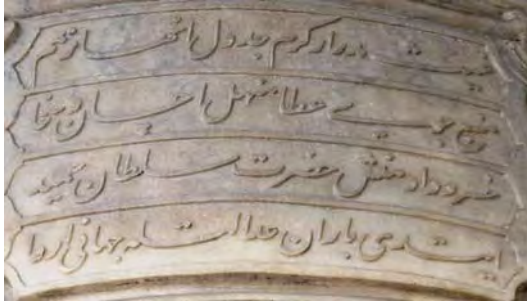 غيث مدرار كرم جدول انهار نعم
منبع جوى عطا منهل احسان و سخا
خسرو داد منش حضرت سلطان حميد
ايتدى باران عدالتله جهانى اروا